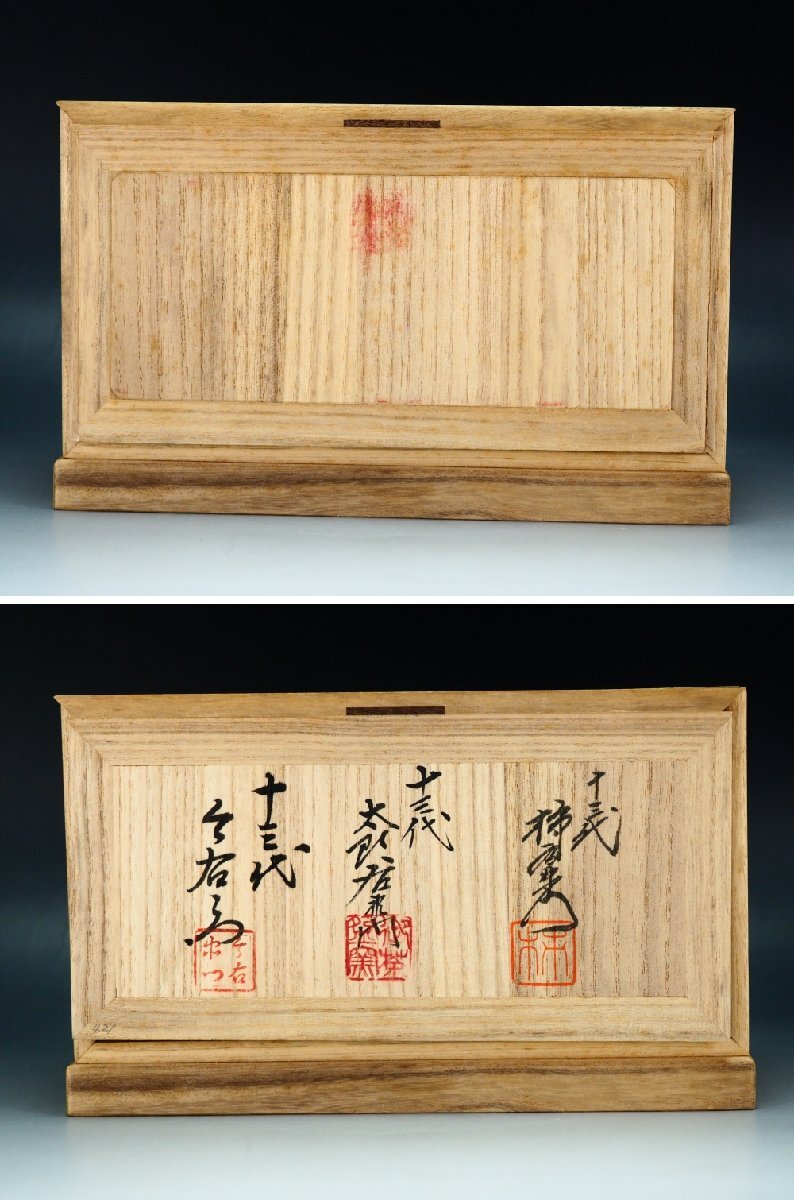 十三代
柿右衛門
十三代
太郎右衛門
十三代
今右衛門
今右
衛門
421